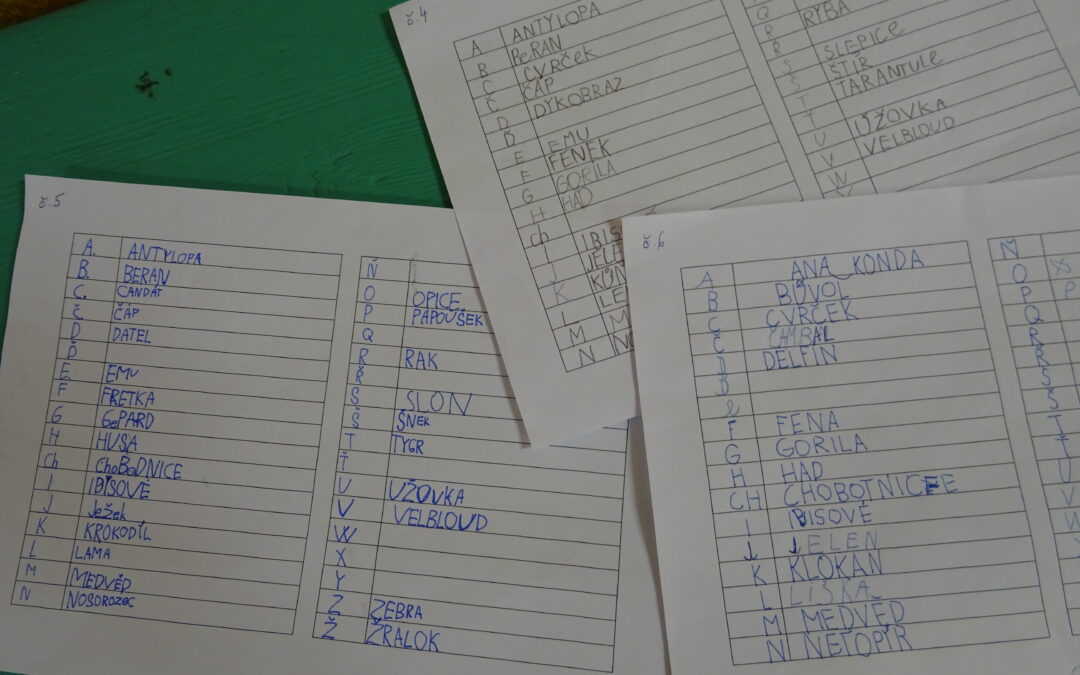 č.4
A ANTYLOPA
B BeRAN
C CVRČeK
Č ČÁP
D DYKOBRAZ
Ď
E EMU
F FENEK
G GORILA
H HAD
Ch
I IBIS
J JELE
K KŮŇ
L LE
M M
N
Q
R RYBA
Ř
S SLEPICE
Š ŠTÍR
T TARANTULE
Ť
U UŽOVKA
V VELBLOUD
W
č.5
A. ANTYLOPA
B. BERAN
C. CANDÁT
Č ČÁP
D DATEL
Ď
E. EMU
F FRETKA
G GePARD
H HUSA
Ch ChoBoDNICE
I IBISOVÉ
J Ježek
K KROKODÝL
L LAMA
M MEDVĚD
N NOSOROZEC
Ň
O OPICE
P PAPOUŠEK
Q
R RAK
Ř
S SLON
Š ŠNEK
T TYGR
Ť
U UŽOVKA
V VELBLOUD
W
X
Y
Z ZEBRA
Ž ŽRALOK
č.6
A ANA KONDA
B BŮVOL
C CVRČEK
Č
D DELFÍN
Ď
F FENA
G GORILA
H HAD
CH CHOBOTNICE
I IBISOVÉ
J JELEN
K KLOKAN
L LIŠKA
M MEDVĚD
N NETOPÍR
Ň
O
P P
Q
R
Ř
S
Š
T
Ť
U
V
W